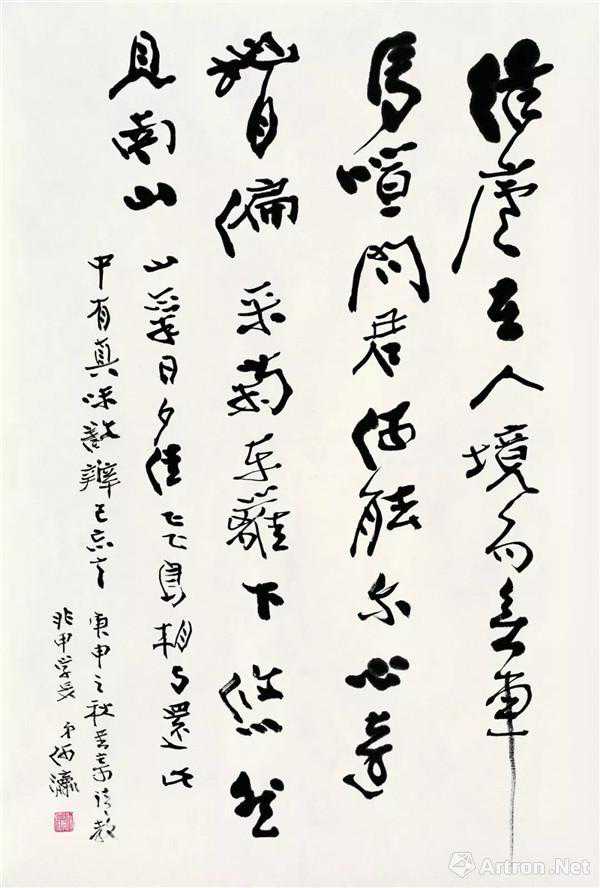 結廬在人境而無車
馬喧問君何能尔心遠
地自偏采菊東籬下悠然
見南山
山氣日夕佳飛鳥相与還此
中有真味欲辨已忘言
庚申之秋 请教
非甲学長 弟何瀛
Artron.Net